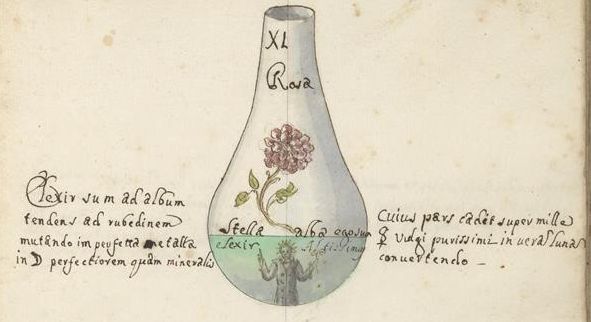 XL
Rosa
Elexir sum ad album
tendens ad rubedinem
mutando imperfetta metalla
in D perfectiorem quam mineralis
Stella alba ego sum
elexir Altissimu
Cuius pars cadet super mille
☿ vulgi purissimi in veras lunas
convertendo